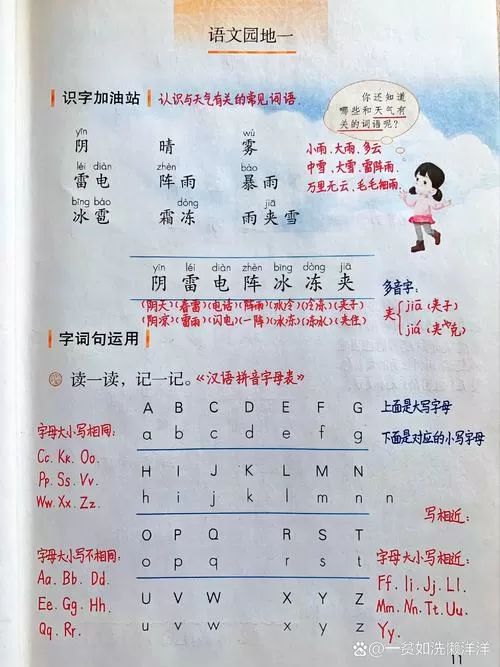 语文园地一
识字加油站 认识与天气有关的常见词语.
你还知道
哪些和天气有
关的词语呢?
yīn wù
阴 晴 雾
léi diàn zhèn bào
雷电 阵雨 暴雨
bīng báo dòng jiā
冰雹 霜冻 雨夹雪
小雨、大雨、多云
中雪、大雪、雷阵雨、
万里无云、毛毛细雨、
yīn léi diàn zhèn bīng dòng jiā
阴 雷 电 阵 冰 冻 夹
(阴天)(春雷)(电话)(阵雨)(冰冷)(冷冻)(夹子)
(阴凉)(雷雨)(闪电)(一阵)(冰冻)(冻冰)(夹住)
多音字:
夹 jiā (夹子)
jiá (夹克)
字词句运用
读一读,记一记。《汉语拼音字母表》
A B C D E F G 上面是大写字母
a b c d e f g 下面是对应的小写字母
H I J K L M N
h i j k l m n n
O P Q R S T
o p q r s t
U V W X Y Z
u v w x y z
字母大小写相同:
Cc. Kk. Oo.
Pp. Ss. Vv.
Ww. Xx. Zz.
字母大小写不相同:
Aa. Bb. Dd.
Ee. Gg. Hh.
Qq. Rr.
写相近:
字母大小写相近:
Ff. Ii. Jj. Ll.
Mm. Nn. Tt. Uu.
Yy.
11
@一贫如洗懒洋洋